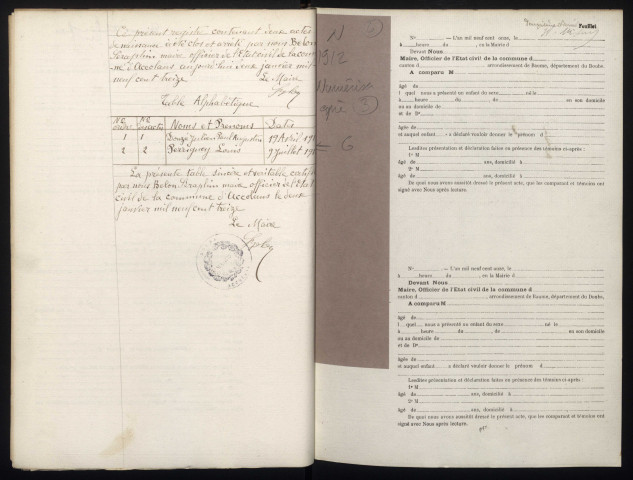 Ce présent registre contenant deux actes
de naissance a été clos et arrêté par nous Belon
Séraphin maire officier de l'Etat civil de la commu
ne d'Accolans aujourd'hui deux janvier mil
neuf cent treize
Le Maire
Table Alphabétique
Nos Nos Noms et Prénoms Dates
1 1 Julien Paul Augustin 17 Avril 191
2 2 Perriguey Louis 9 Juillet 19
La présente table sincère et véritable certifiée
par nous Belon Séraphin maire officier de l'Etat
civil de la commune d'Accolans le deux
janvier mil neuf cent treize
Le Maire
N
1912
Numérisé
= 6
Feuillet
No — L'an mil neuf cent onze, le
à heure du , en la Mairie d
Devant Nous
Maire, Officier de l'Etat civil de la commune d
canton d arrondissement de Baume, département du Doubs,
A comparu M
âgé de
l quel nous a présenté un enfant du sexe né le
à heure du , de en son domicile
ou au domicile de
et de De
âgée de
et auquel enfant a déclaré vouloir donner le prénom d
Lesdites présentation et déclaration faites en présence des témoins ci-après :
1o M
âgé de ans, domicilié à
2o M
âgé de ans, domicilié à
De quoi nous avons aussitôt dressé le présent acte, que les comparant et témoins ont
signé avec Nous après lecture.
No — L'an mil neuf cent onze, le
à heure du , en la Mairie d
Devant Nous
Maire, Officier de l'Etat civil de la commune d
canton d arrondissement de Baume, département du Doubs,
A comparu M
âgé de
l quel nous a présenté un enfant du sexe né le
à heure du , de en son domicile
ou au domicile de
et de De
âgée de
et auquel enfant a déclaré vouloir donner le prénom d
Lesdites présentation et déclaration faites en présence des témoins ci-après :
1o M
âgé de ans, domicilié à
2o M
âgé de ans, domicilié à
De quoi nous avons aussitôt dressé le présent acte, que les comparant et témoins ont
signé avec Nous après lecture.